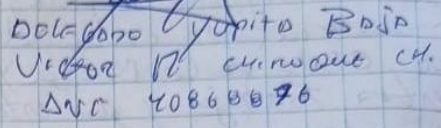 Delegado Yupita Baja
Victor R chinoque ch.
DNI 40868876